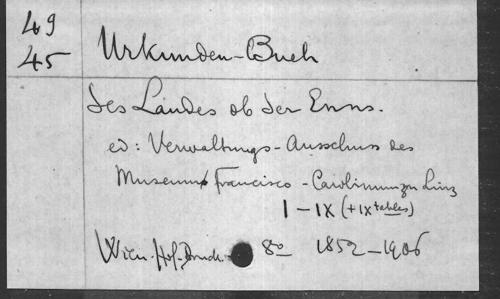 49
45
Urkunden-Buch
des Landes ob der Enns.
ed: Verwaltungs-Ausschuss des
Museums Francisco-Carolinum zu Linz
I–IX (+IX tables)
Wien. Hof-Druck. 8o 1852–1906